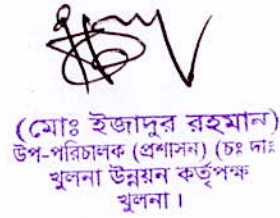 (মোঃ ইজাদুর রহমান)
উপ-পরিচালক (প্রশাসন) (চঃ দাঃ
খুলনা উন্নয়ন কর্তৃপক্ষ
খুলনা।